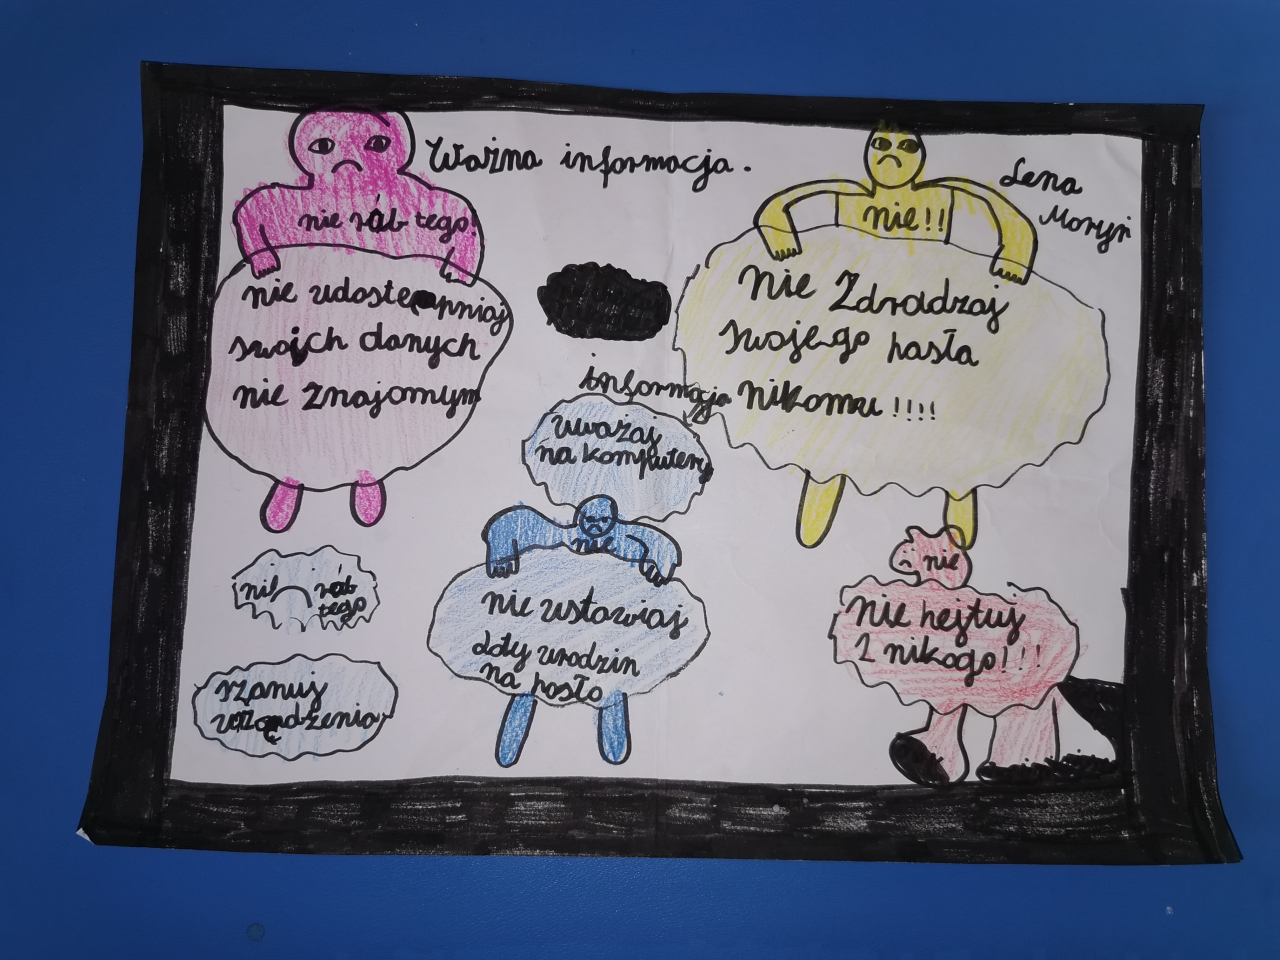 Ważna informacja.
Lena
Moryń
nie rób tego!
nie udostępniaj
swojch danych
nie znajomym
nie!!
Nie Zdradzaj
swojego hasła
nikomu !!!!
informacja
uważaj
na komputery
nie
nie wstawiaj
daty urodzin
na hasło
nie rób
tego
szanuj
urządzenia
nie
Nie hejtuj
nikogo!!!